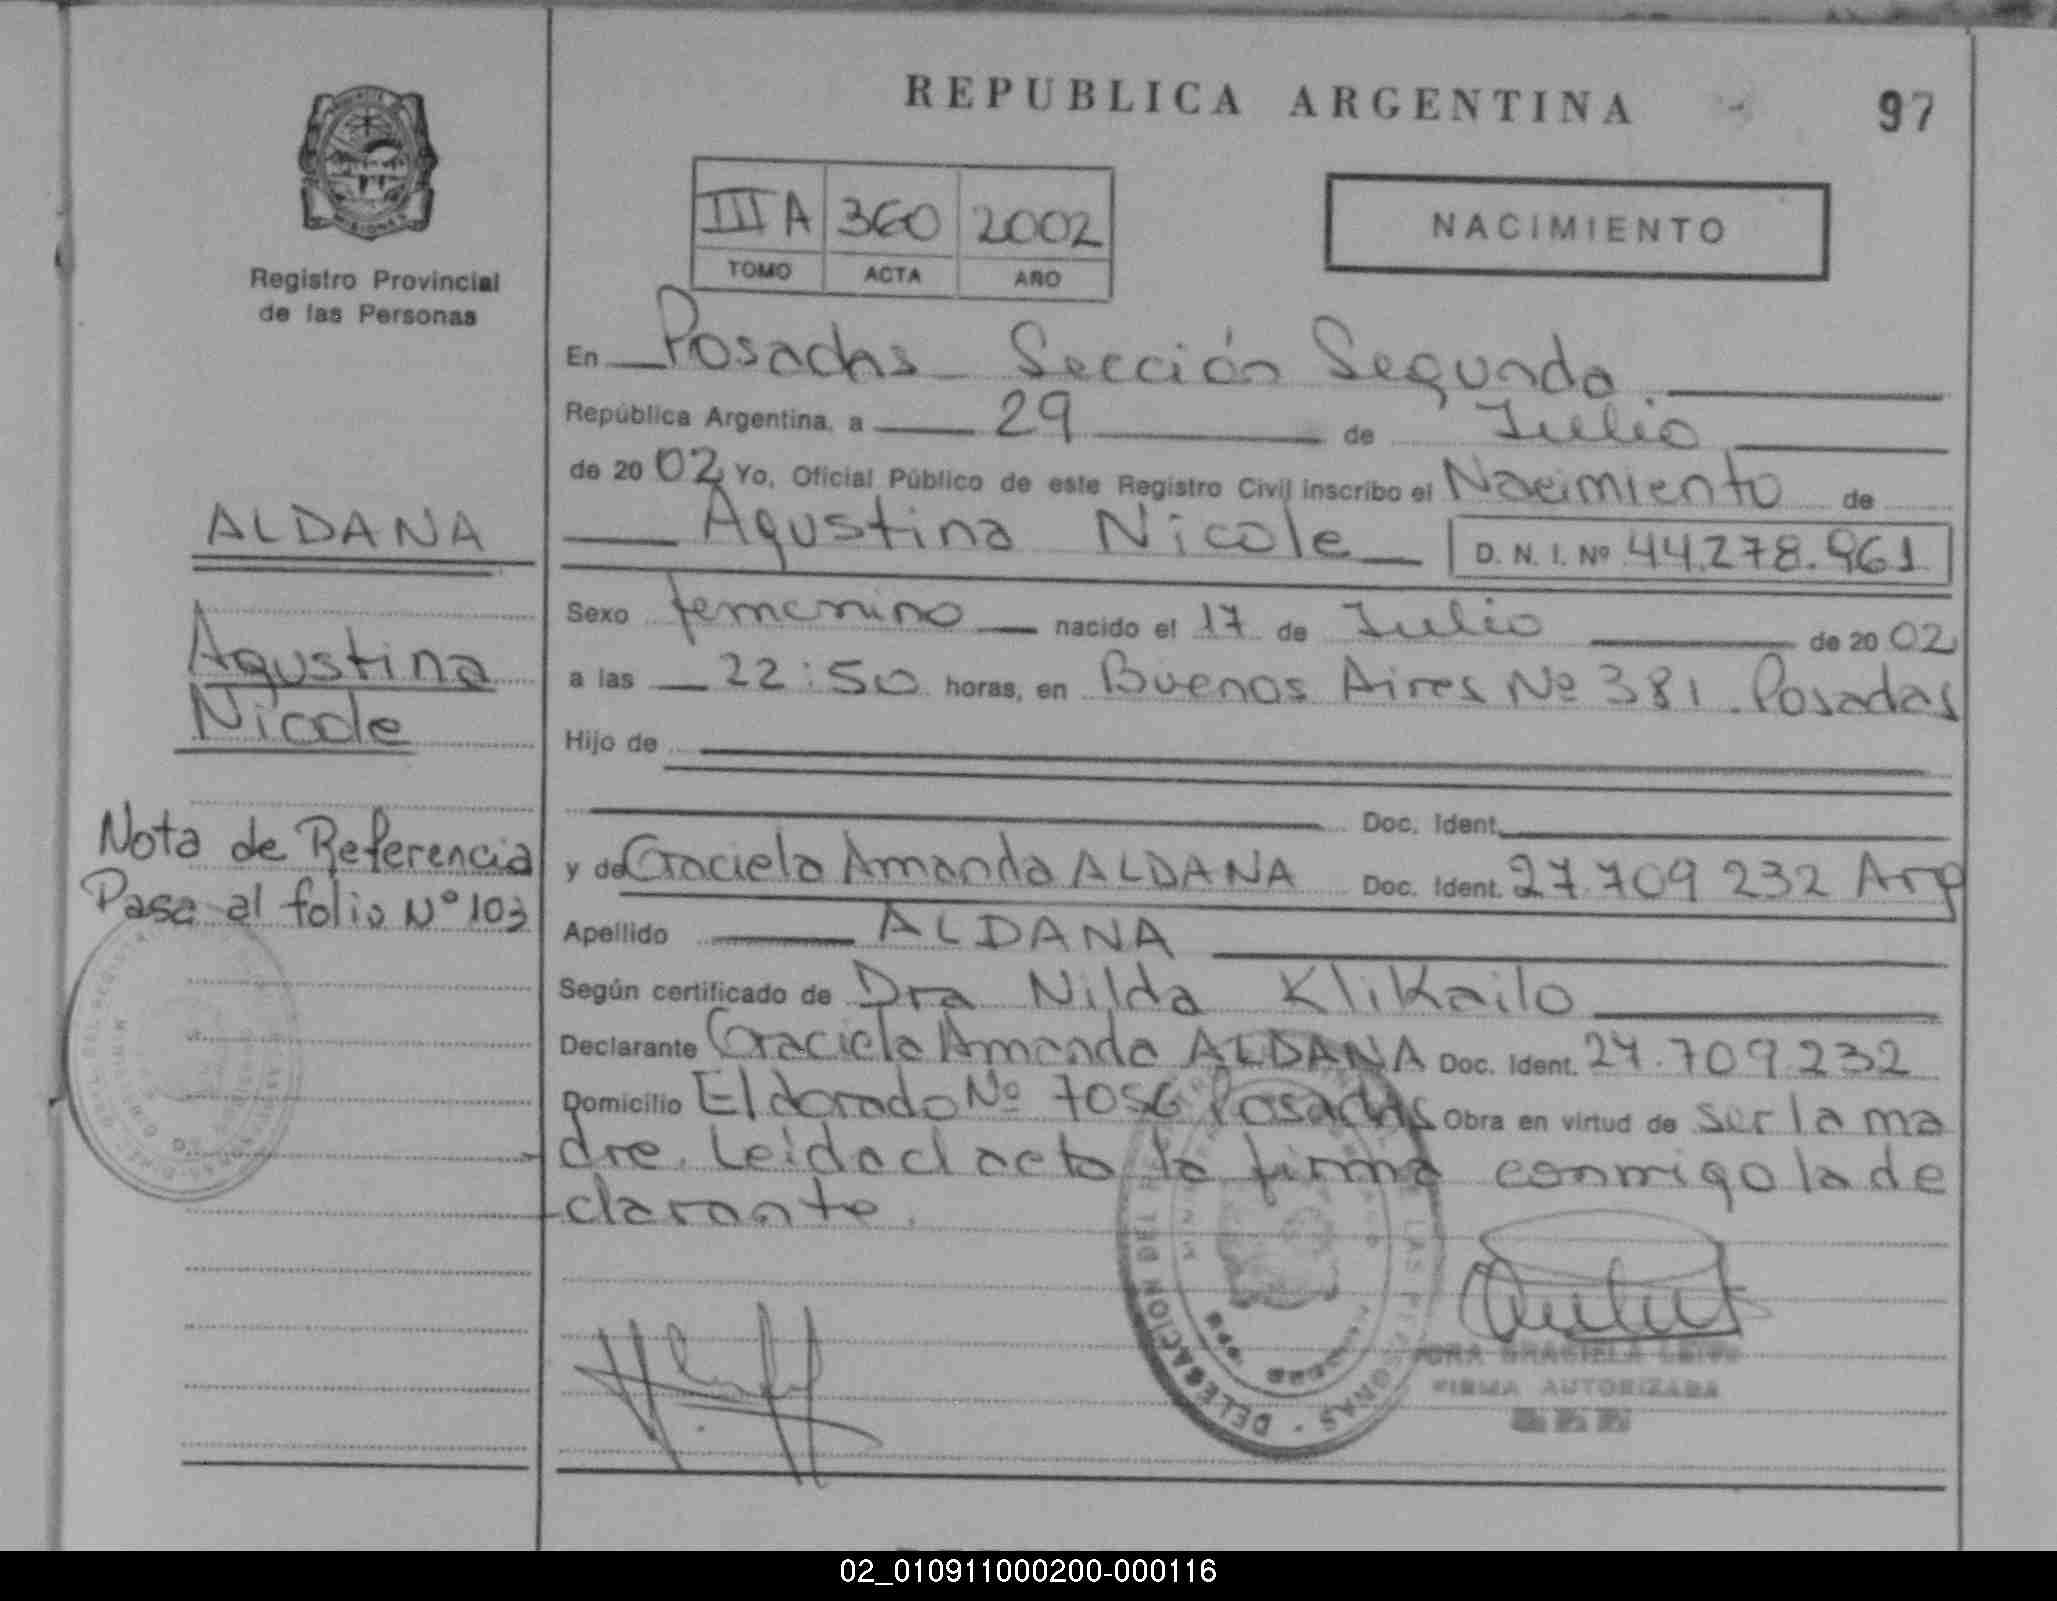 REPUBLICA ARGENTINA
97
III A 360 2002
TOMO ACTA AÑO
NACIMIENTO
Registro Provincial
de las Personas
En Posadas Sección Segunda
República Argentina, a 29 de Julio
de 2002 Yo, Oficial Público de este Registro Civil inscribo el Nacimiento de
Agustina Nicole D. N. I. Nº 44.278.961
Sexo femenino nacido el 17 de Julio de 2002
a las 22:50 horas, en Buenos Aires Nº 381. Posadas
Hijo de
Doc. Ident.
y de Graciela Amanda ALDANA Doc. Ident. 27.709 232 Arg
Apellido ALDANA
Según certificado de Dra Nilda Klikailo
Declarante Graciela Amanda ALDANA Doc. Ident. 27.709.232
Domicilio Eldorado Nº 7056 Posadas Obra en virtud de ser la ma
dre. Leida el acta la firma conmigo la de
clarante.
ALDANA
Agustina
Nicole
Nota de Referencia
Pasa al folio Nº 103
DELEGACION DEL
LAS PERSONAS
GRACIELA
FIRMA AUTORIZADA
02_010911000200-000116